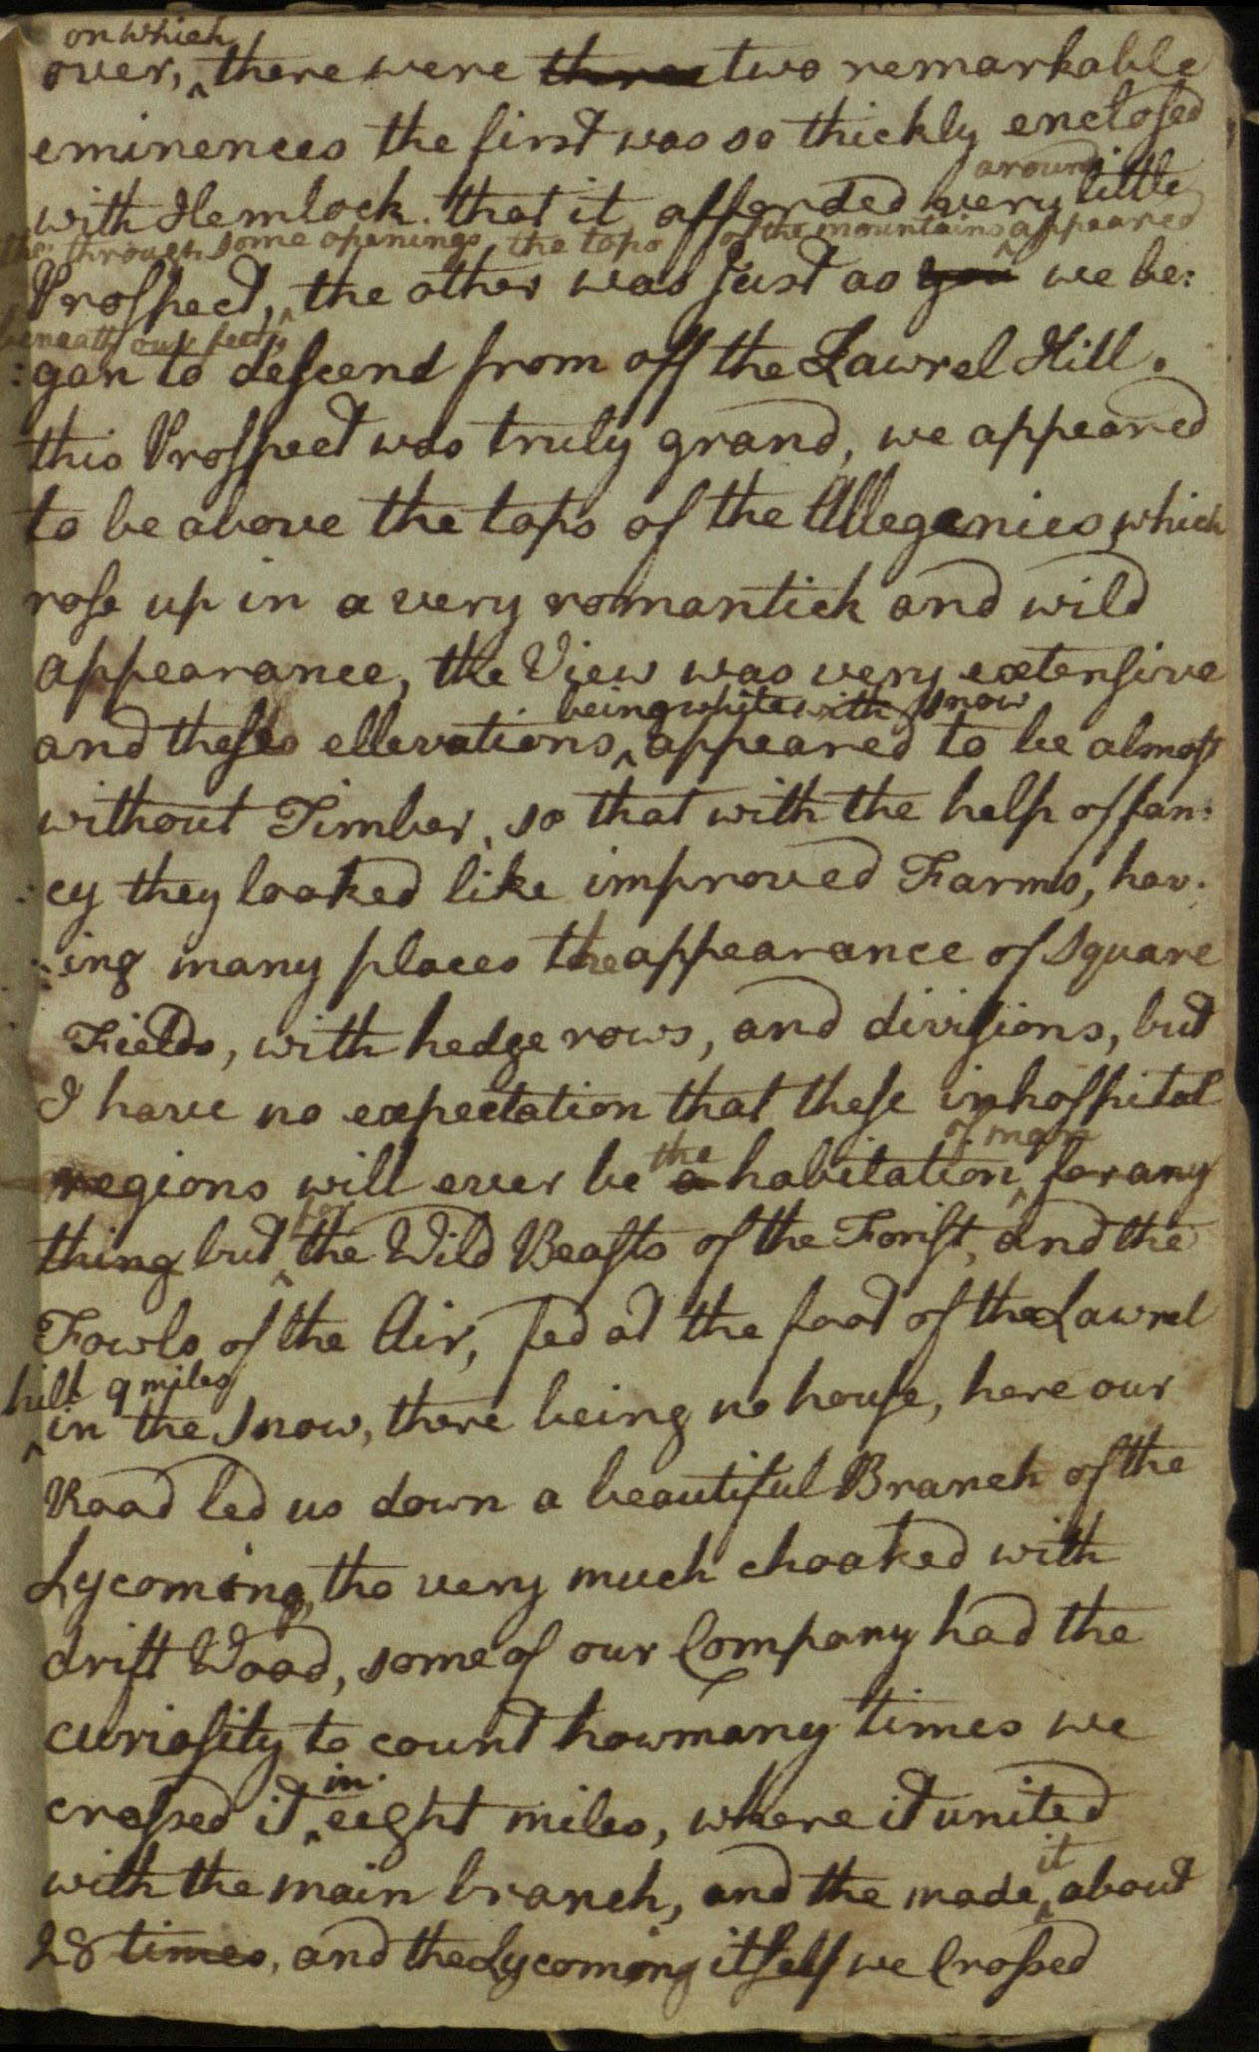 on which
over, ^ there were three two remarkable
eminences the first was so thickly enclosed
around
with Hemlock. that it afforded very little
tho' through some openings the tops of the mountains ^ appeared
Prospect, ^ the other was just as you we be:
beneath our feet,
:gan to descend from off the Lawrel Hill.
this Prospect was truly grand, we appeared
to be above the tops of the Allegenies, which
rose up in a very romantick and wild
appearance, the View was very extensive
being white with snow
and these ellevations ^ appeared to be almost
without Timber, so that with the help of fan:
:cy they looked like improved Farms, hav:
:ing many places the appearance of Square
Fields, with hedge rows, and divisions, but
I have no expectation that these inhospital
the of men
regions will ever be a habitation ^ for any
for
thing but ^ the Wild Beasts of the Forist, and the
Fowls of the Air, fed at the foot of the Lawrel
hill 9 miles
^ in the Snow, there being no house, here our
Road led us down a beautiful Branch of the
Lycoming, tho very much choaked with
drift Wood, some of our Company had the
curiosity to count howmany times we
in
crossed it ^ eight miles, where it united
it
with the main branch, and the made ^ about
28 times, and the Lycoming itself we Crossed